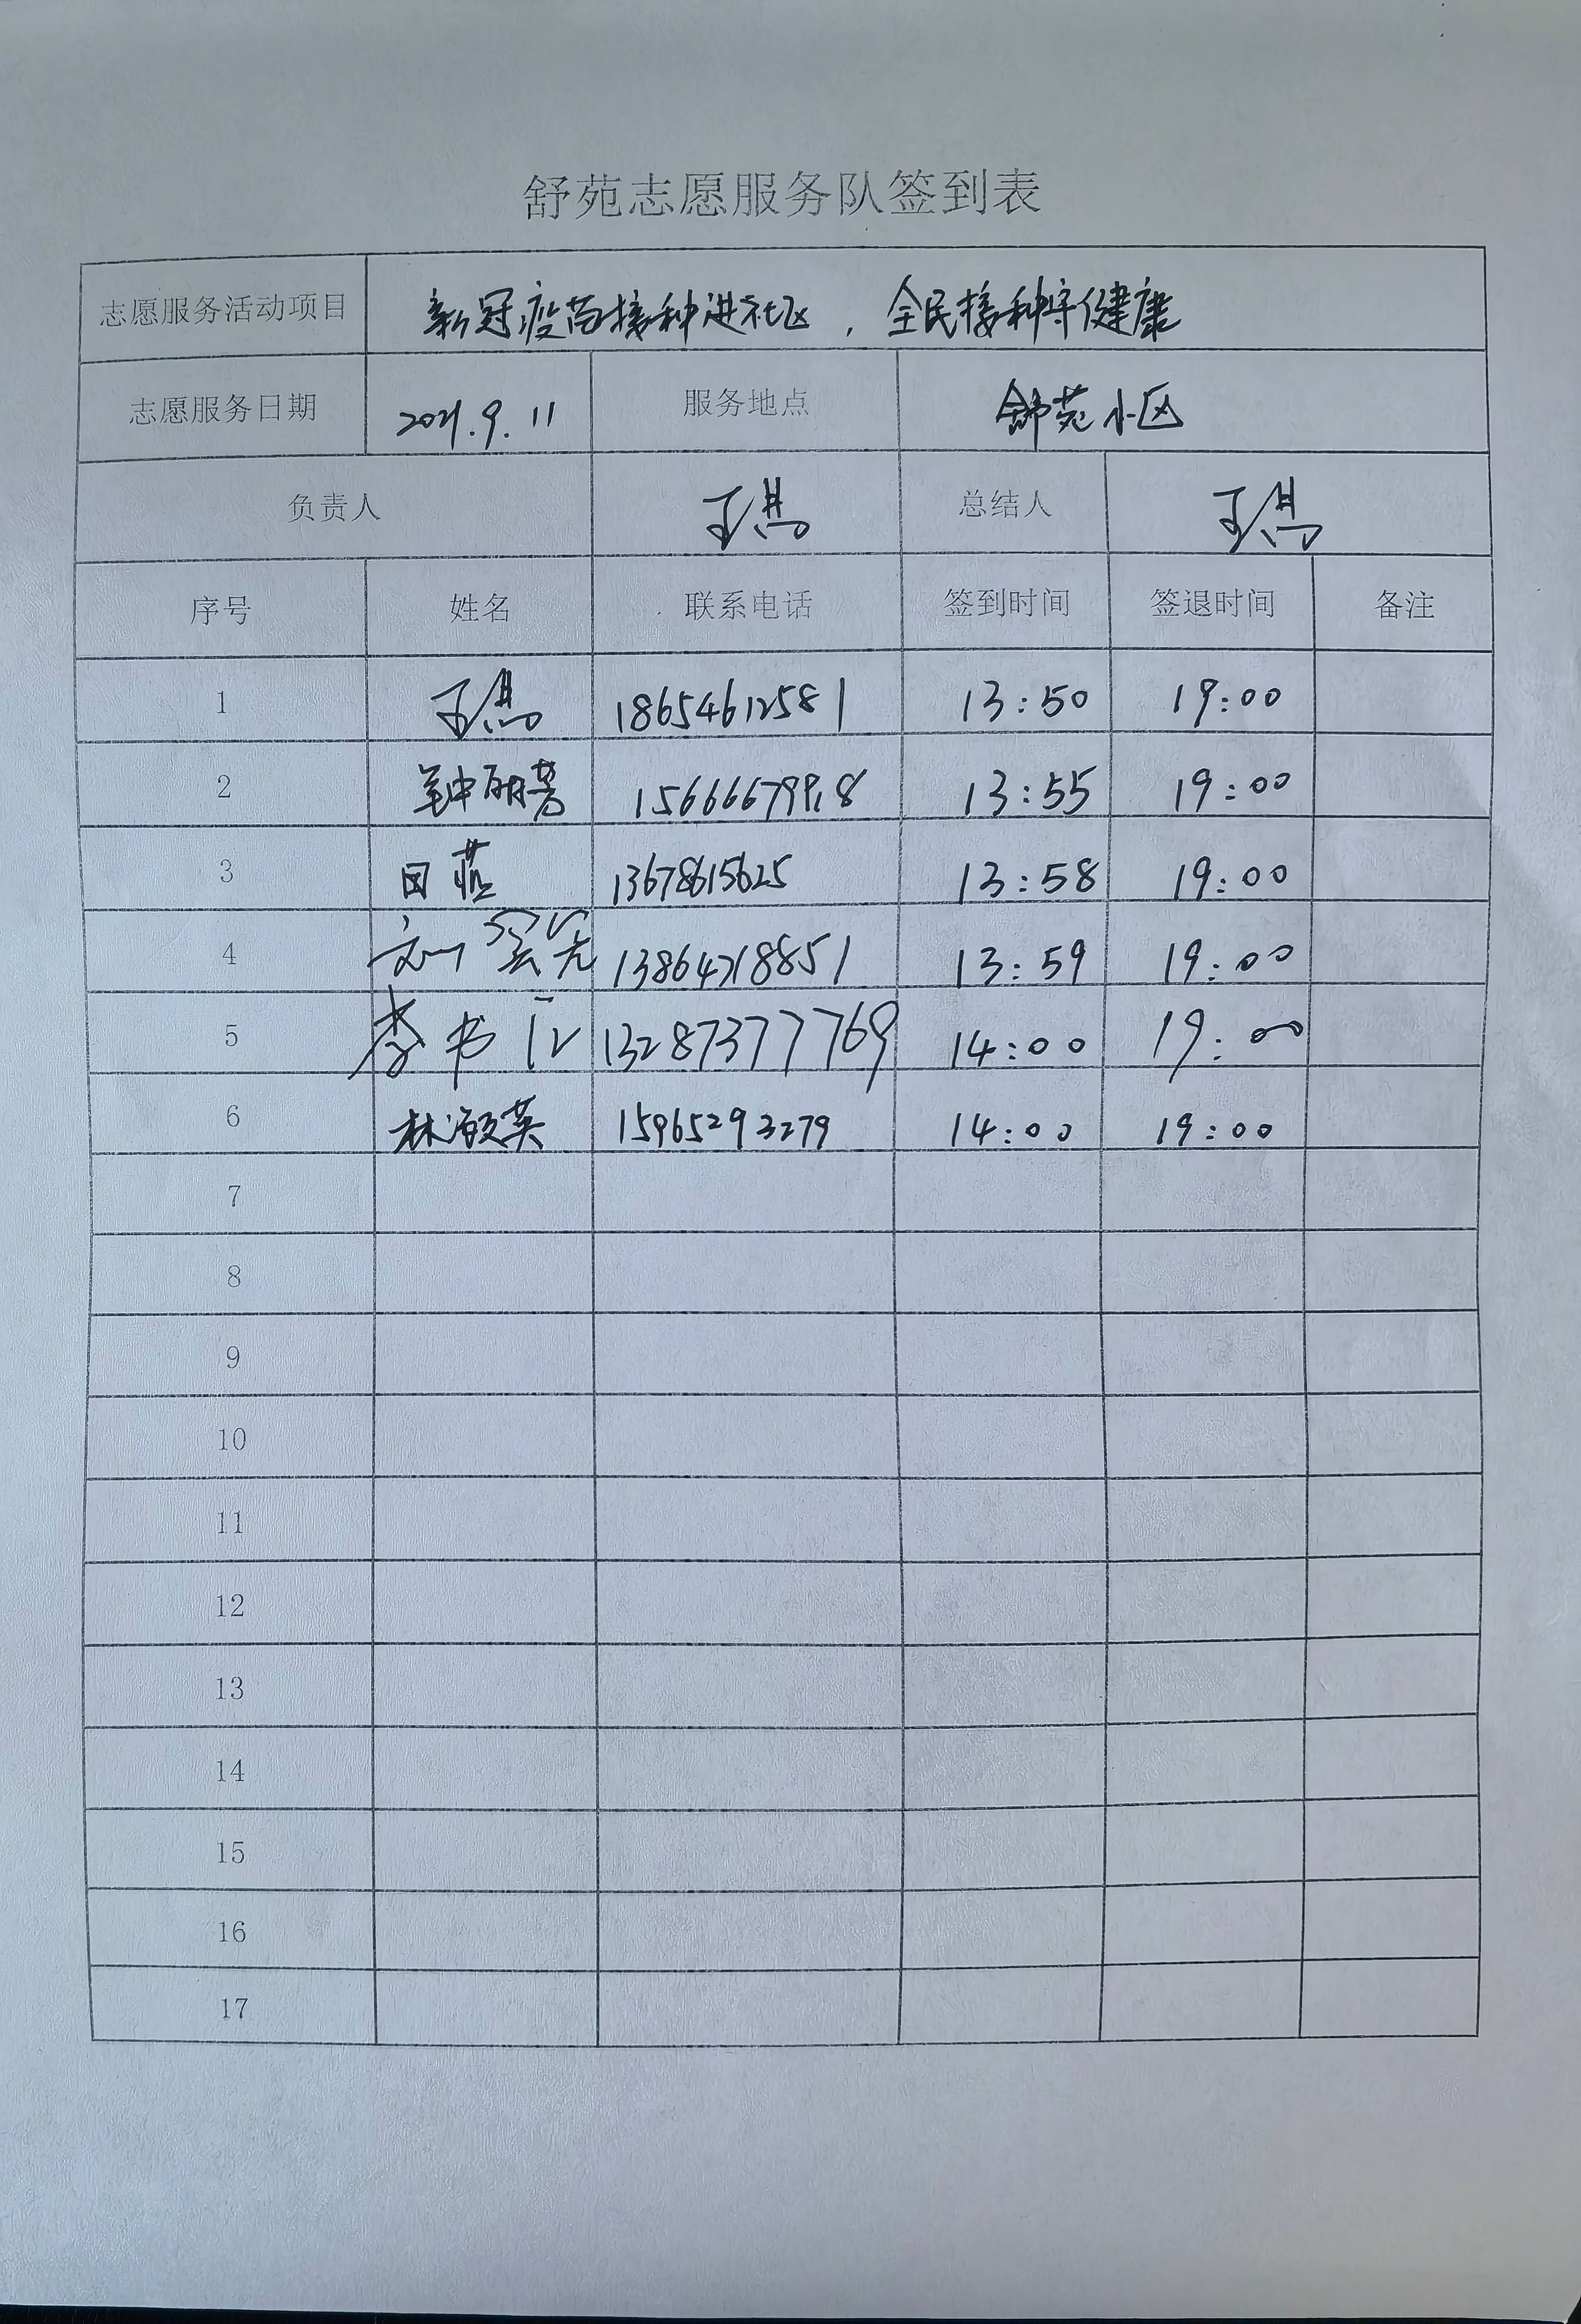 舒苑志愿服务队签到表
志愿服务活动项目 新冠疫苗接种进社区，全民接种守健康
志愿服务日期 2021.9.11 服务地点 舒苑小区
负责人 王 总结人 王
序号 姓名 联系电话 签到时间 签退时间 备注
1 王 18654612581 13:50 19:00
2 钟丽芳 13:55 19:00
3 田蓝 13678615625 13:58 19:00
4 刘 13864718851 13:59 19:00
5 李书 13287377769 14:00 19:00
6 林淑英 15965293279 14:00 19:00
7
8
9
10
11
12
13
14
15
16
17